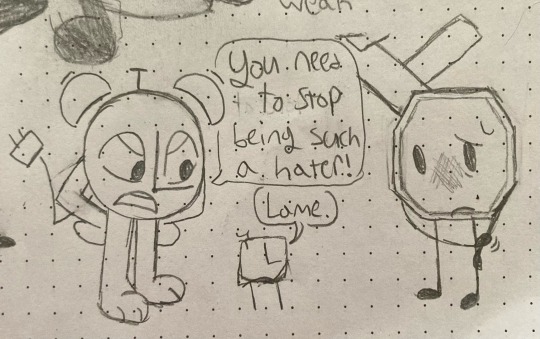 weak
You need
to stop
being such
a hater!
Lame.